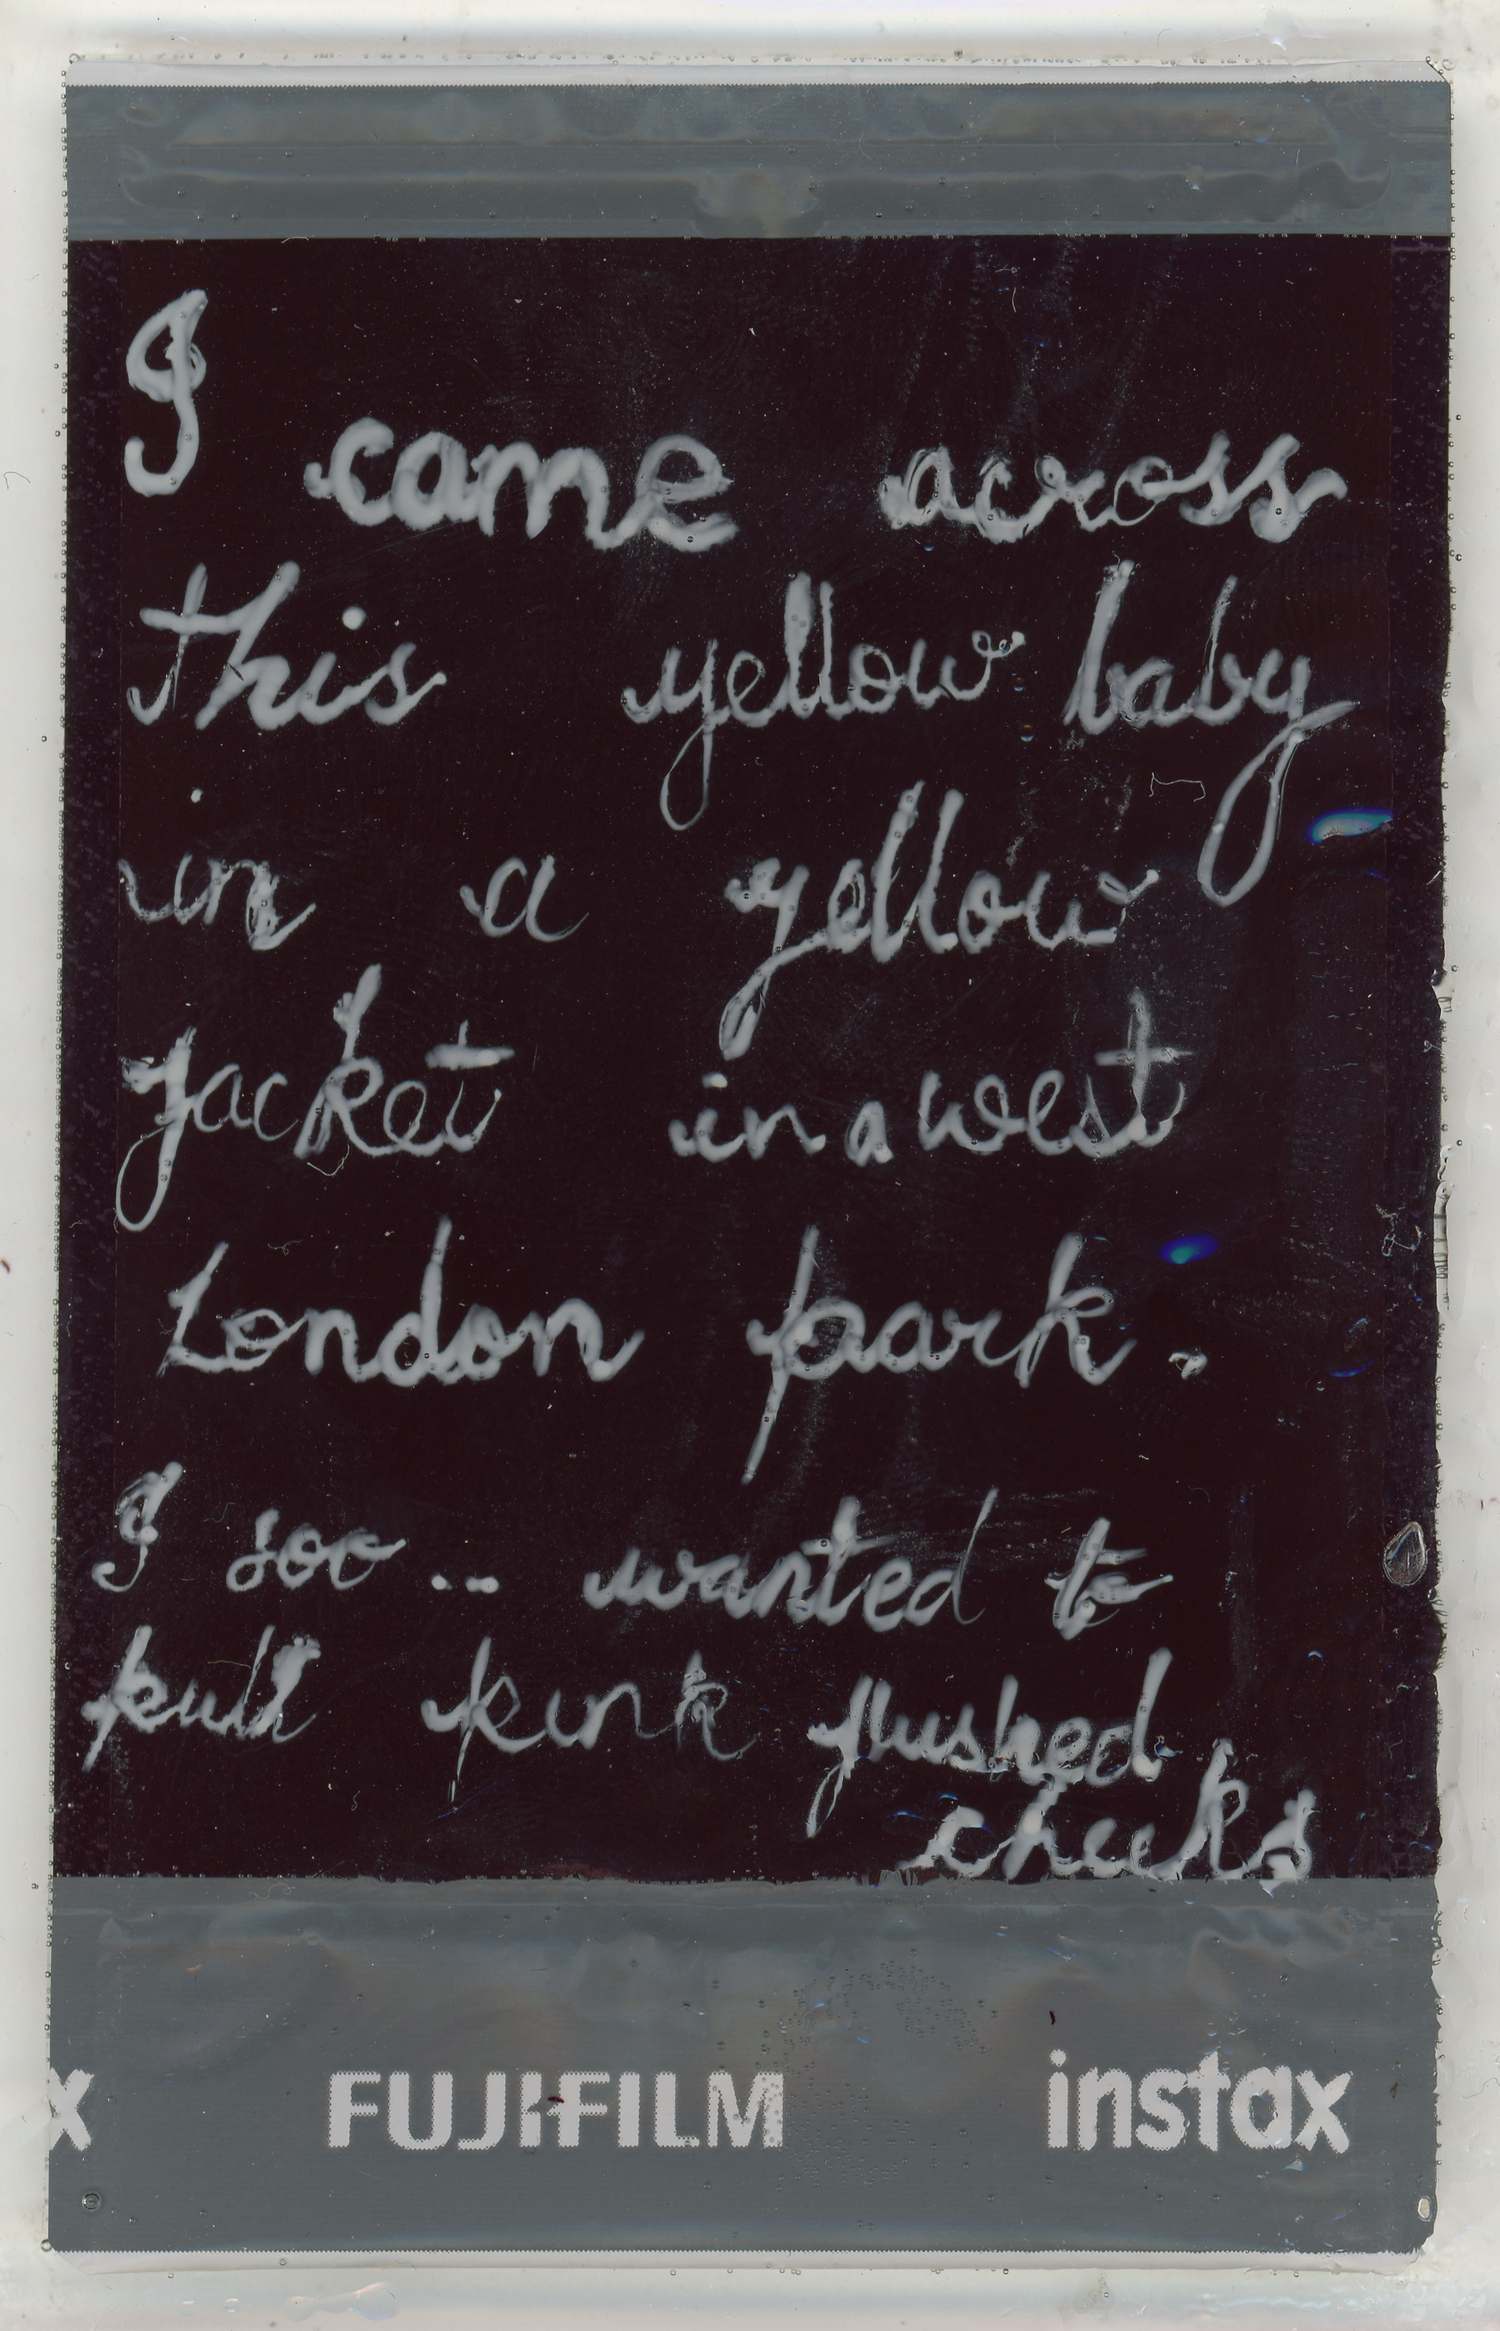 I came across
this yellow baby
in a yellow
jacket in a west
London park.
I soo .. wanted to
pull pink flushed
cheeks
x FUJIFILM instax